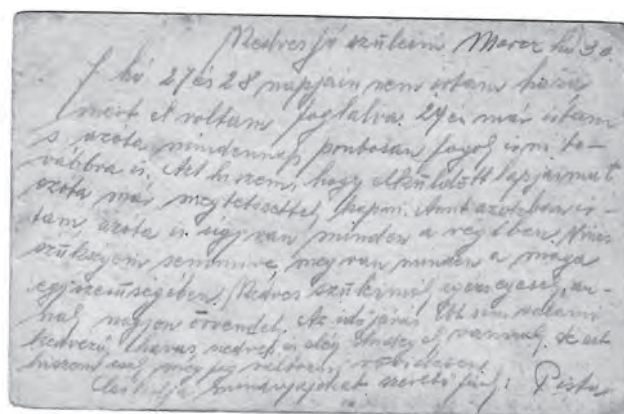 Kedves jó szüleim Marcz hó 30.
f hó 27 és 28 napjain nem irtam haza
mert el voltam foglalva. 29 én már irtam
s azota mindennap pontosan fogok irni to-
vábbra is. Azt hiszem, hogy elküldött lapjaimat
azota már megtetszettek kapni. Amit azokban ir-
tam azota is úgy van minden a régiben. Nincs
szükségem semmire, meg van minden a maga
egyszerűségében. Kedves szüleimék egészségesek, an-
nak nagyon örvendek. Az időjárás itt sem valami
kedvező, havas, nedves és elég hideg is van, de azt
hiszem ez még fog változni rövidesen
kezeit szerető fiuk: Pista